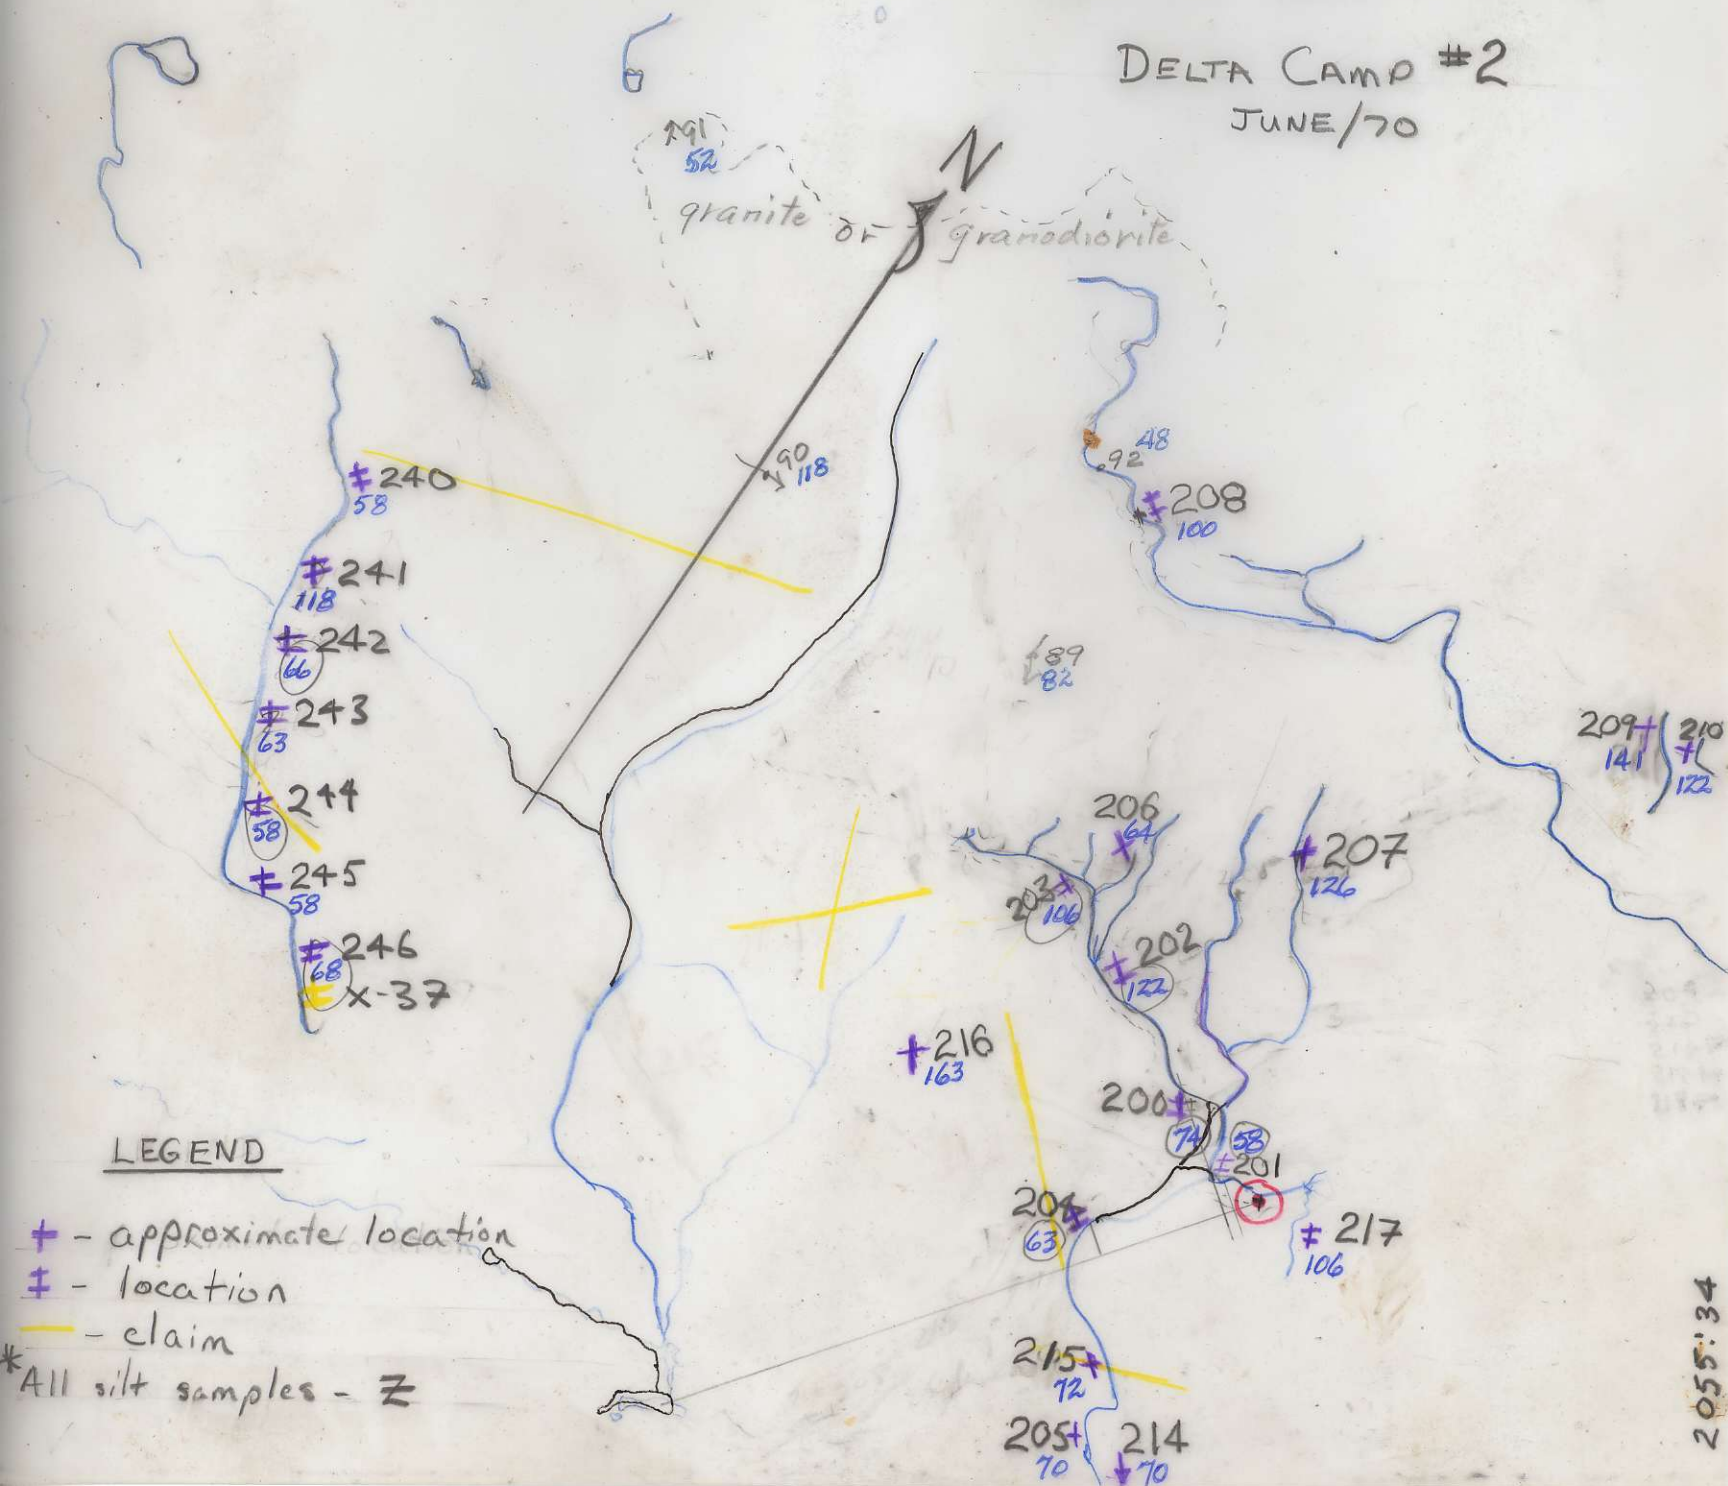 DELTA CAMP #2
JUNE/70
N
291
52
granite or granodiorite
48
92
90
118
208
100
240
58
241
118
242
66
243
63
244
58
245
58
246
68
x-37
89
82
209
141
210
122
206
64
207
126
203
106
202
122
216
163
200
74
58
201
204
63
217
106
215
72
205
70
214
70
LEGEND
+ - approximate location
‡ - location
- claim
*All silt samples - Z
2055:34